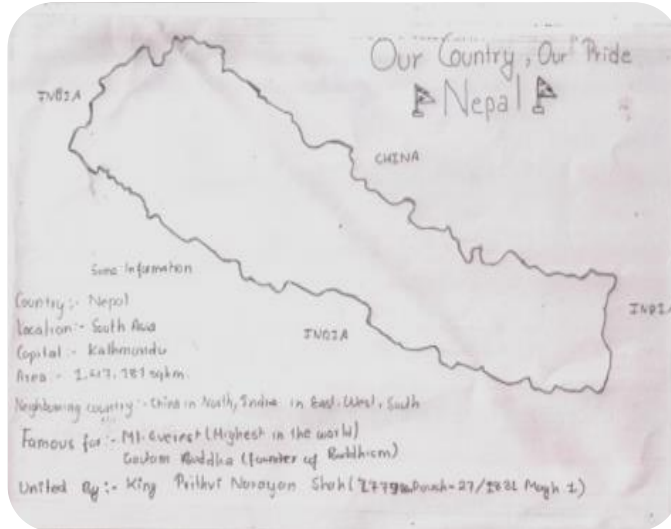 Our Country, Our Pride
Nepal
INDIA
CHINA
INDIA
INDIA
Some Information
Country :- Nepal
Location :- South Asia
Capital :- Kathmandu
Area :- 1,47,181 sqkm.
Neighboring country :- China in North, India in East, West, South
Famous for :- Mt. Everest (Highest in the world)
Gautam Buddha (founder of Buddhism)
United By :- King Prithvi Narayan Shah ( 27/1831 Magh 1)